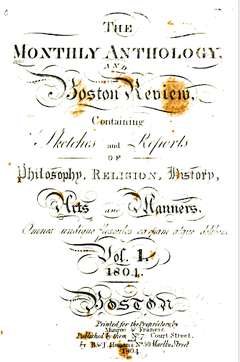 The
Monthly Anthology,
AND
Boston Review.
Containing
Sketches and Reports
OF
Philosophy, Religion, History,
Arts and Manners.
Omnes undique
Vol. I.
1804.
Boston
Printed for the Proprietors, by
Munroe & Francis
Published by them No 7 Court Street,
by B & J Homans No 50 Marlbo. Street
1804